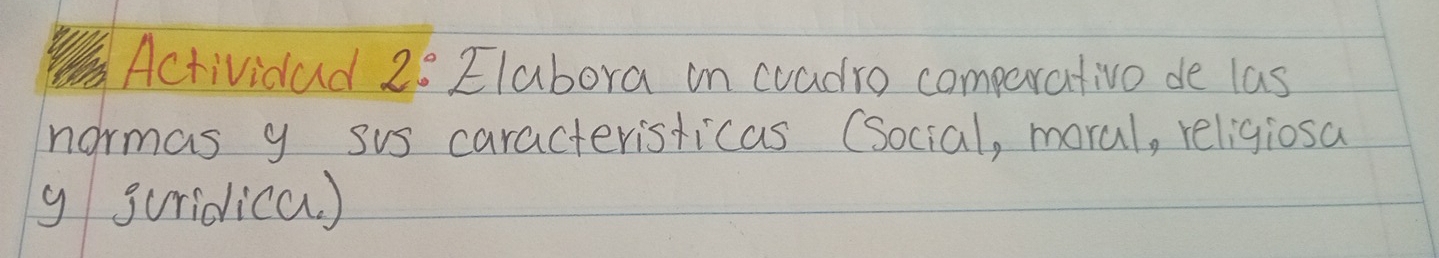 Actividad 2: Elabora un cuadro comparativo de las
normas y sus caracteristicas (Social, moral, religiosa
y juridica.)